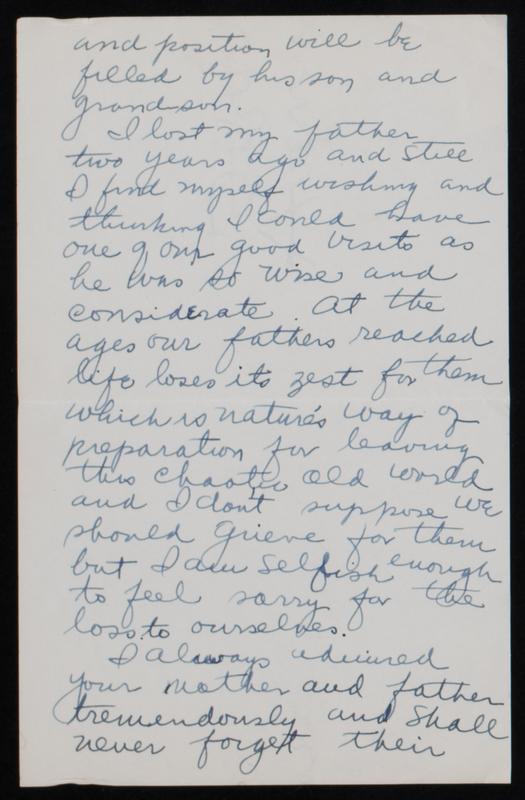 and position will be
filled by his son and
grandson.
I lost my father
two years ago and still
I find myself wishing and
thinking I could have
one of our good visits as
he was so wise and
considerate. At the
ages our fathers reached
life loses its zest for them
which is nature's way of
preparation for leaving
this chaotic old world
and I don't suppose we
should grieve for them
but I am selfish enough
to feel sorry for the
loss to ourselves.
I always admired
your mother and father
tremendously and shall
never forget their